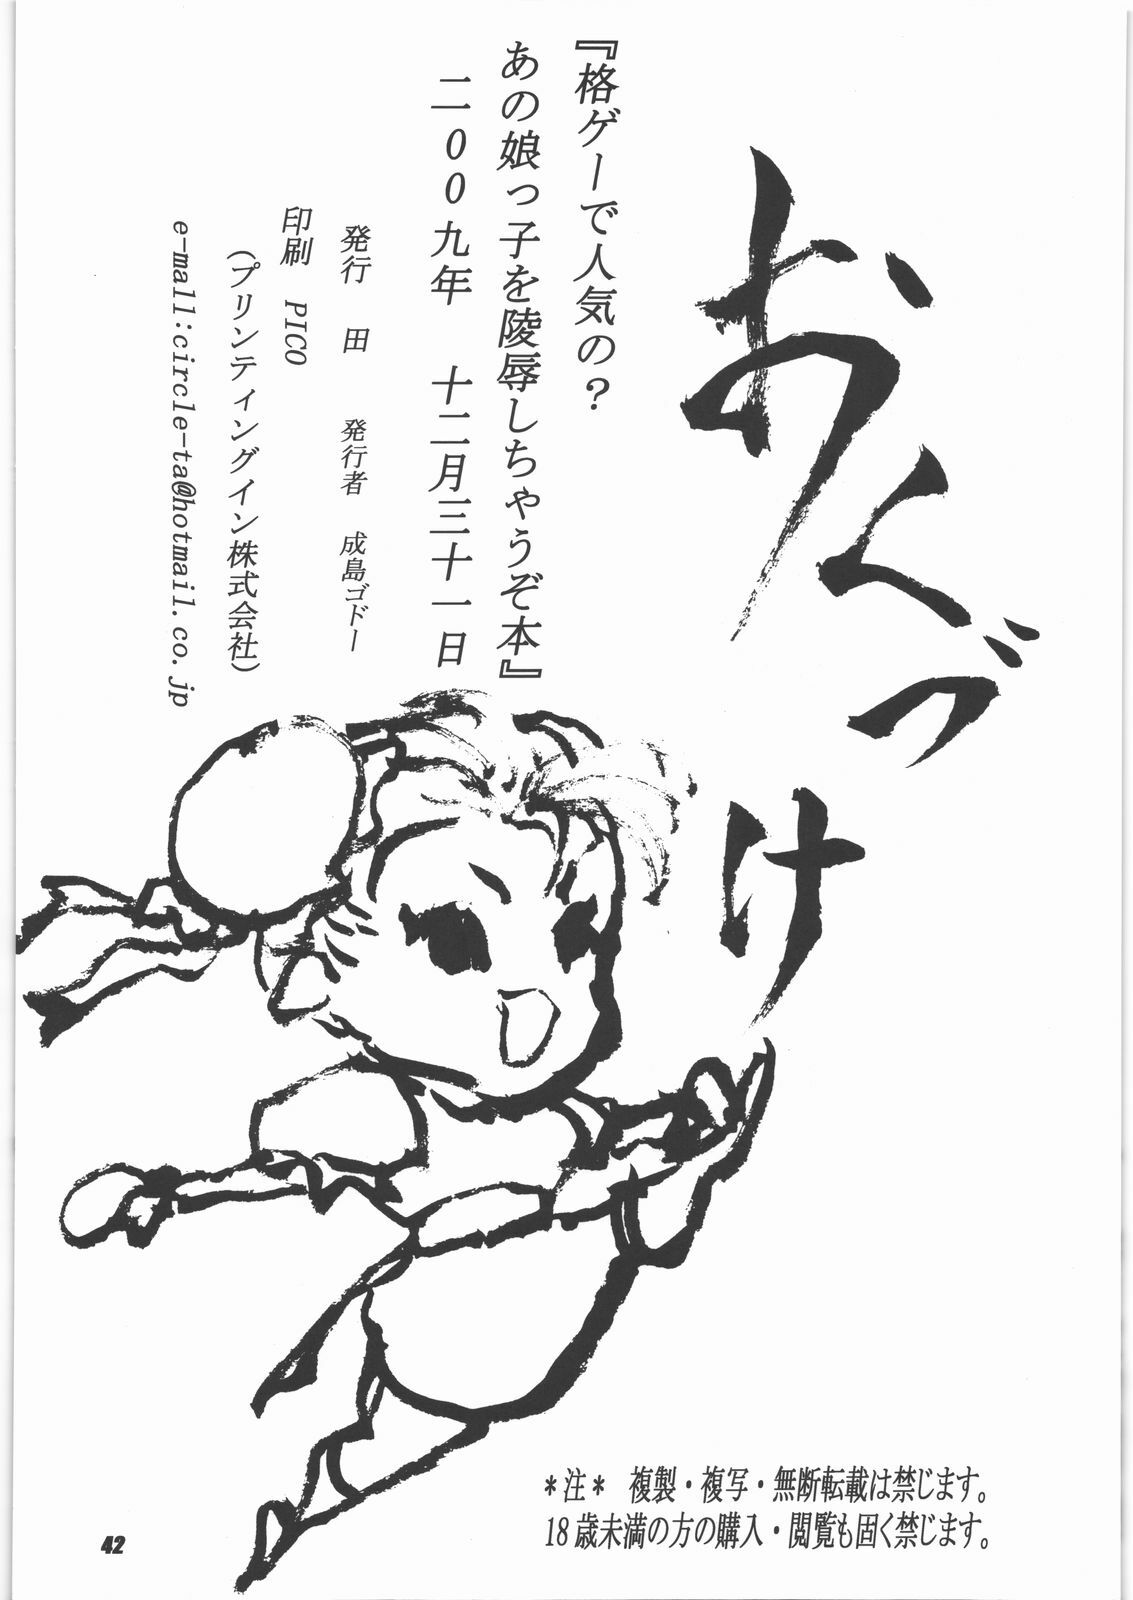 おくづけ
『格ゲーで人気の?
あの娘っ子を陵辱しちゃうぞ本』
二〇〇九年　十二月三十一日
発行　田　発行者　成島ゴドー
印刷　PICO
(プリンティングイン株式会社)
e-mall:circle-ta@hotmail.co.jp
*注*　複製・複写・無断転載は禁じます。
18歳未満の方の購入・閲覧も固く禁じます。
42